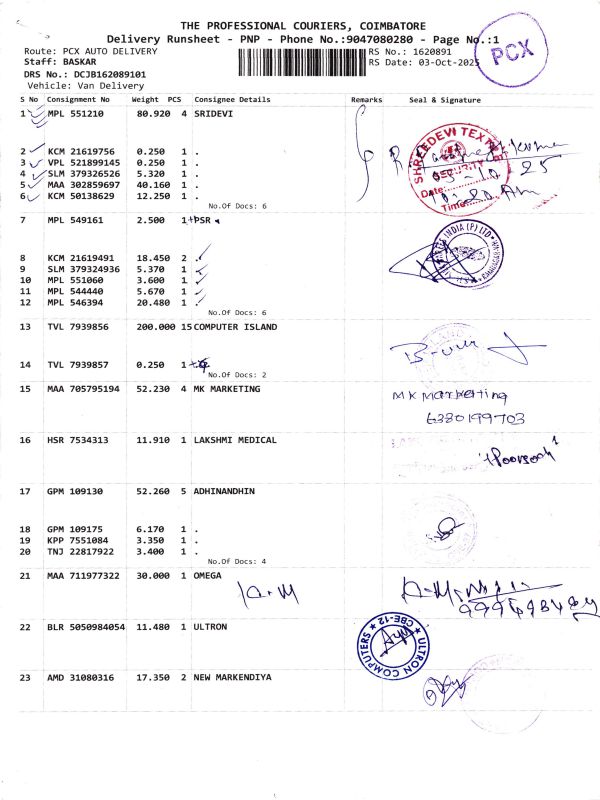 THE PROFESSIONAL COURIERS, COIMBATORE
Delivery Runsheet - PNP - Phone No.:9047080280 - Page No.:1
Route: PCX AUTO DELIVERY
RS No.: 1620891
PCX
Staff: BASKAR
RS Date: 03-Oct-2025
DRS No.: DCJB162089101
Vehicle: Van Delivery
S No Consignment No Weight PCS Consignee Details Remarks Seal & Signature
1 MPL 551210 80.920 4 SRIDEVI
SHREEDEVI TEXTILE
SECURITY
Date:
Time:
03-10-25
10:20 Am
2 KCM 21619756 0.250 1 .
3 VPL 521899145 0.250 1 .
4 SLM 379326526 5.320 1 .
5 MAA 302859697 40.160 1 .
6 KCM 50138629 12.250 1 .
No.Of Docs: 6
7 MPL 549161 2.500 1 PSR
INDIA (P) LTD
8 KCM 21619491 18.450 2 .
9 SLM 379324936 5.370 1 .
10 MPL 551060 3.600 1 .
11 MPL 544440 5.670 1 .
12 MPL 546394 20.480 1 .
No.Of Docs: 6
13 TVL 7939856 200.000 15 COMPUTER ISLAND
14 TVL 7939857 0.250 1
No.Of Docs: 2
15 MAA 705795194 52.230 4 MK MARKETING
MK Marketing
6380199703
16 HSR 7534313 11.910 1 LAKSHMI MEDICAL
17 GPM 109130 52.260 5 ADHINANDHIN
18 GPM 109175 6.170 1 .
19 KPP 7551084 3.350 1 .
20 TNJ 22817922 3.400 1 .
No.Of Docs: 4
21 MAA 711977322 30.000 1 OMEGA
22 BLR 5050984054 11.480 1 ULTRON
ULTRON COMPUTERS
CBE-12
23 AMD 31080316 17.350 2 NEW MARKENDIYA